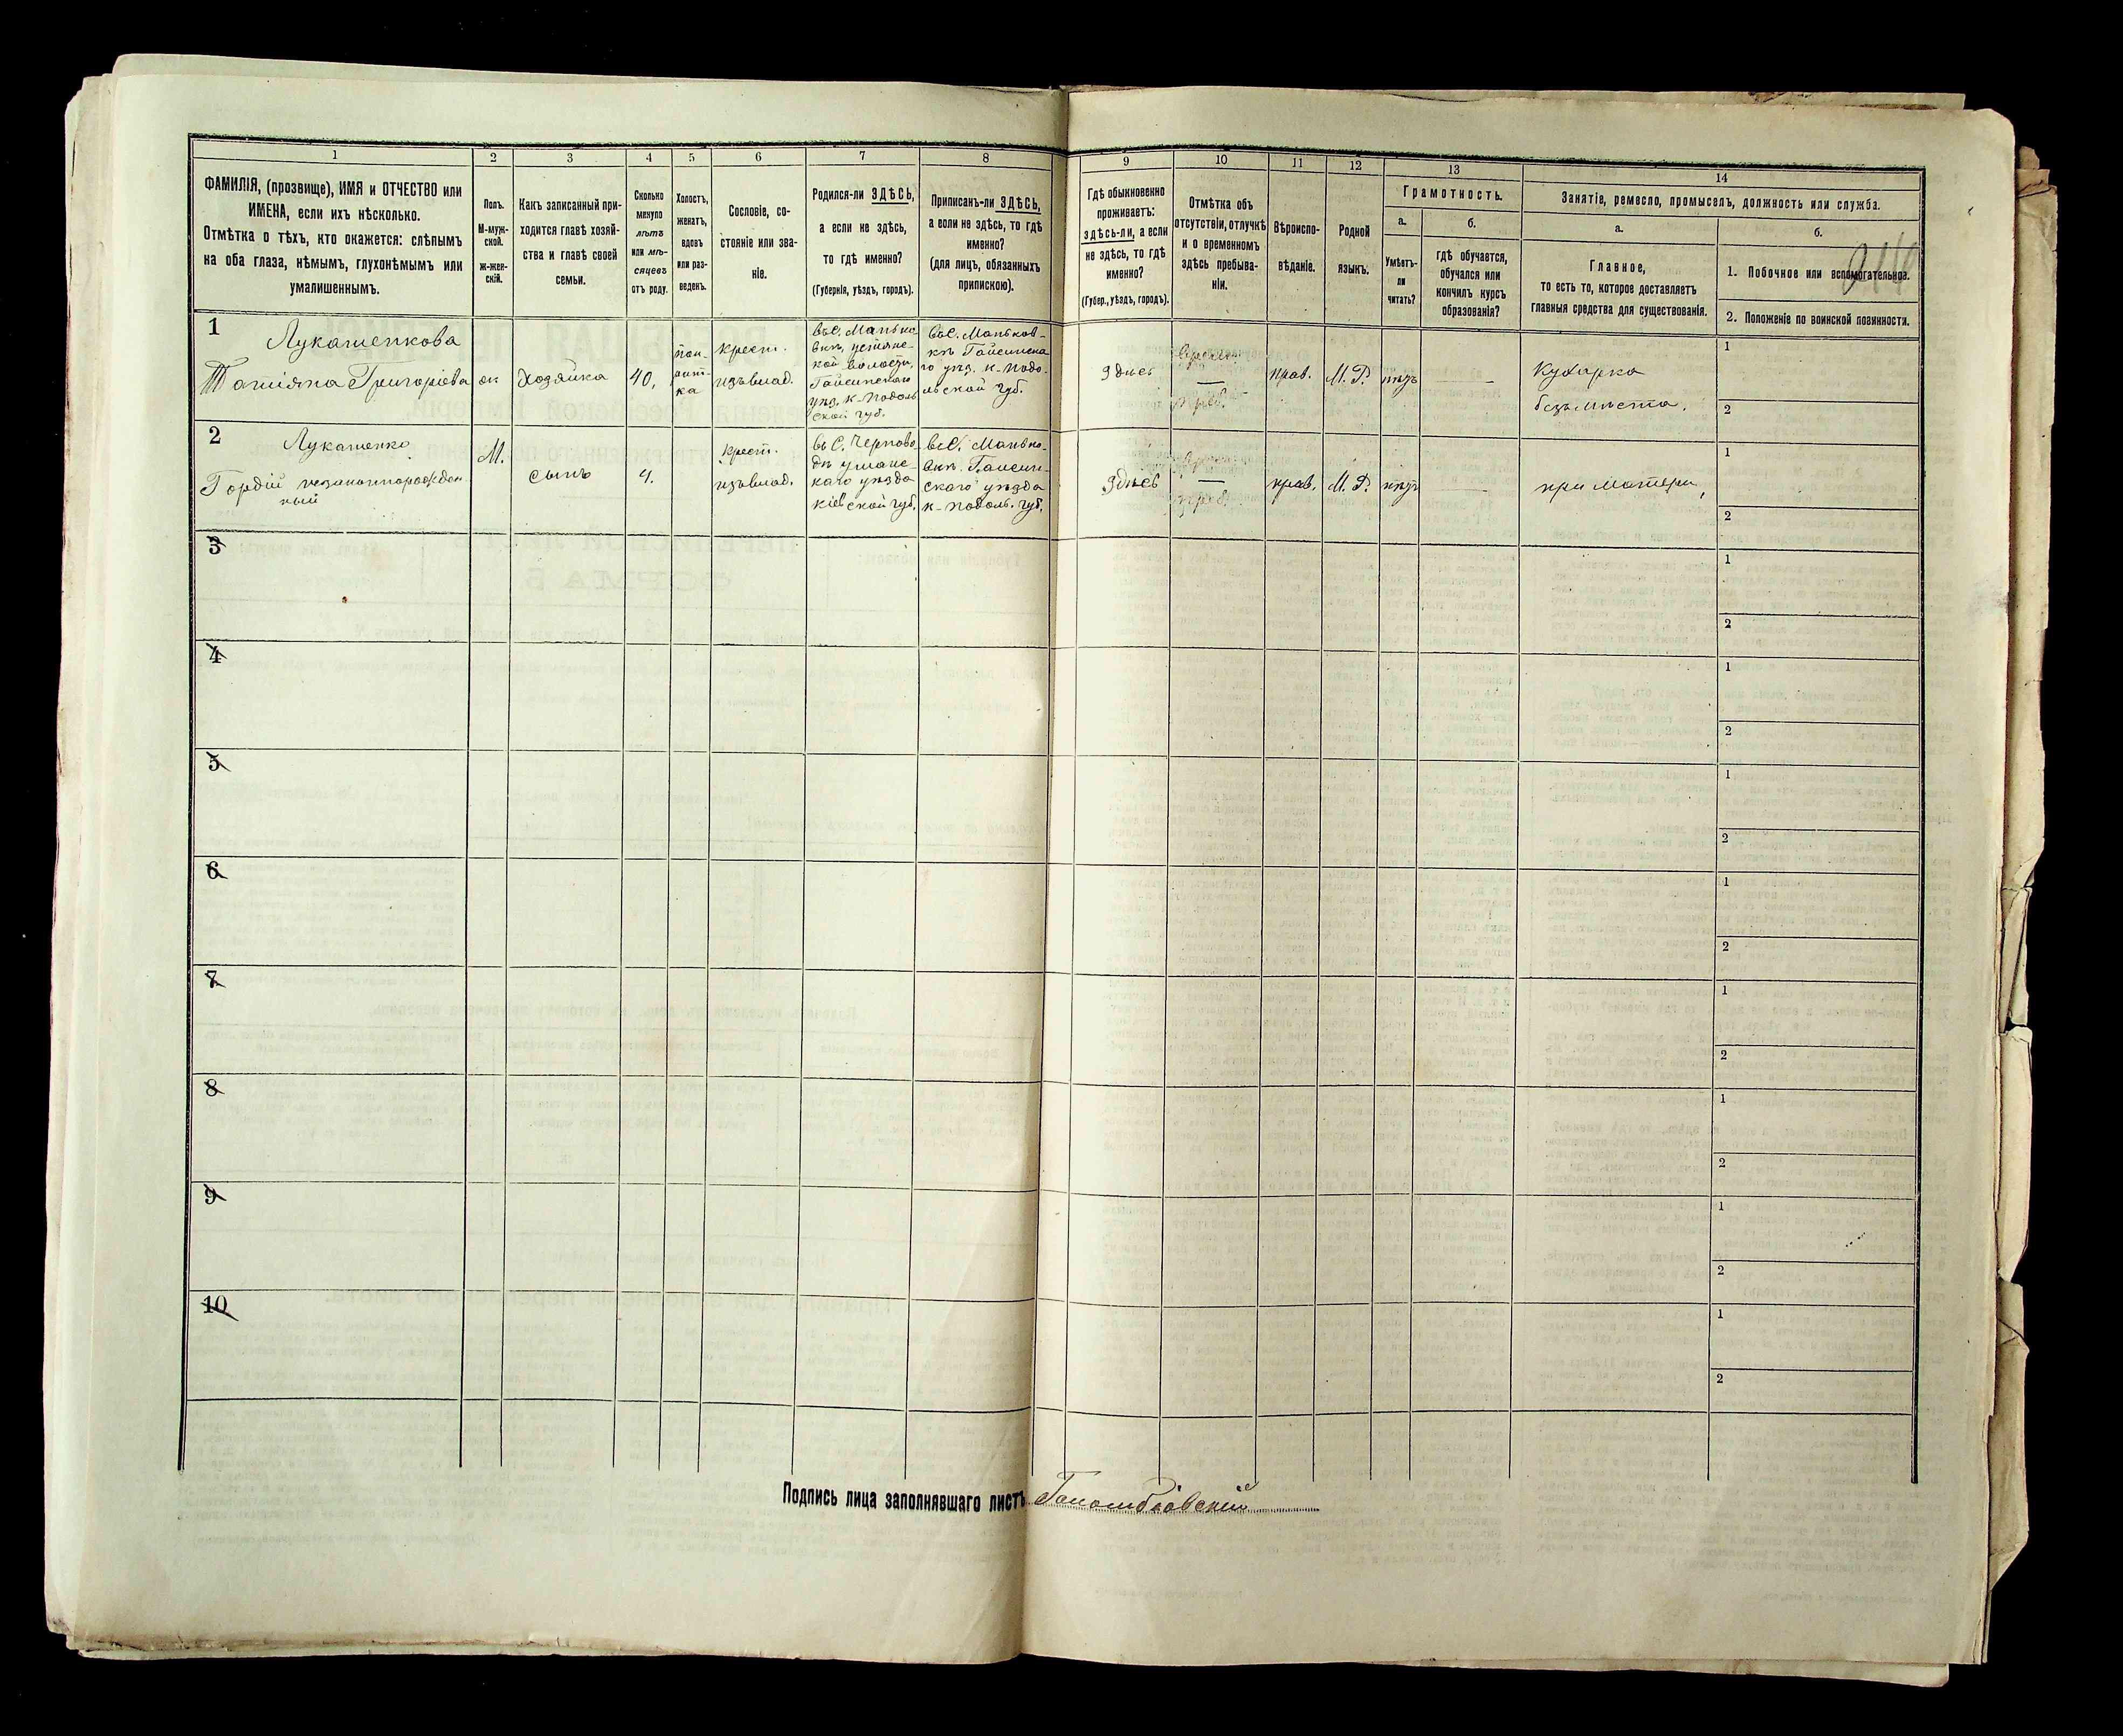 1
2
3
4
5
6
7
8
9
10
11
12
13
14
ФАМИЛІЯ, (прозвище), ИМЯ и ОТЧЕСТВО или
ИМЕНА, если ихъ нѣсколько.
Отмѣтка о тѣхъ, кто окажется: слѣпымъ
на оба глаза, нѣмымъ, глухонѣмымъ или
умалишеннымъ.
Полъ.
М-муж-
ской.
Ж-жен-
скій.
Какъ записанный при-
ходится главѣ хозяй-
ства и главѣ своей
семьи.
Сколько
минуло
лѣтъ
или мѣ-
сяцевъ
отъ роду.
Холостъ,
женатъ,
вдовъ
или раз-
веденъ.
Сословіе, со-
стояніе или зва-
ніе.
Родился-ли ЗДѢСЬ,
а если не здѣсь,
то гдѣ именно?
(Губернія, уѣздъ, городъ).
Приписанъ-ли ЗДѢСЬ,
а если не здѣсь, то гдѣ
именно?
(для лицъ, обязанныхъ
припискою).
Гдѣ обыкновенно
проживаетъ:
здѣсь-ли, а если
не здѣсь, то гдѣ
именно?
(Губер., уѣздъ, городъ).
Отмѣтка объ
отсутствіи, отлучкѣ
и о временномъ
здѣсь пребыва-
ніи.
Вѣроиспо-
вѣданіе.
Родной
языкъ.
Грамотность.
а.
Умѣетъ-
ли
читать?
б.
гдѣ обучается,
обучался или
кончилъ курсъ
образованія?
Занятіе, ремесло, промыселъ, должность или служба.
а.
Главное,
то есть то, которое доставляетъ
главныя средства для существованія.
б.
1. Побочное или вспомогательное.
2. Положеніе по воинской повинности.
1
Лукашенкова
Татіяна Григоріева
Хозяйка
40,
крест.
изъ влад.
въ С. Манько
вкѣ,
кой волости,
Гайсинскаго
уѣз. к-Подоль
ской губ.
въ С. Маньков-
кѣ Гайсинска
го уѣз. к-Подо-
льской губ.
Здѣсь
прав.
М. Р.
нѣтъ
Кухарка
безъ мѣста.
1
2
2
Лукашенко
Гордій незаконнорожден
ный
М.
сынъ
4.
крест.
изъ влад.
въ С. Черпово
дѣ уманс-
каго уѣзда
кіевской губ.
въ С. Манько-
вкѣ. Гайсин-
скаго уѣзда
к-Подоль. губ.
Здѣсь
прав.
М. Р.
нѣтъ
при матери,
1
2
3
1
2
4
1
2
5
1
2
6
1
2
7
1
2
8
1
2
9
1
2
10
1
2
Подпись лица заполнявшаго листъ